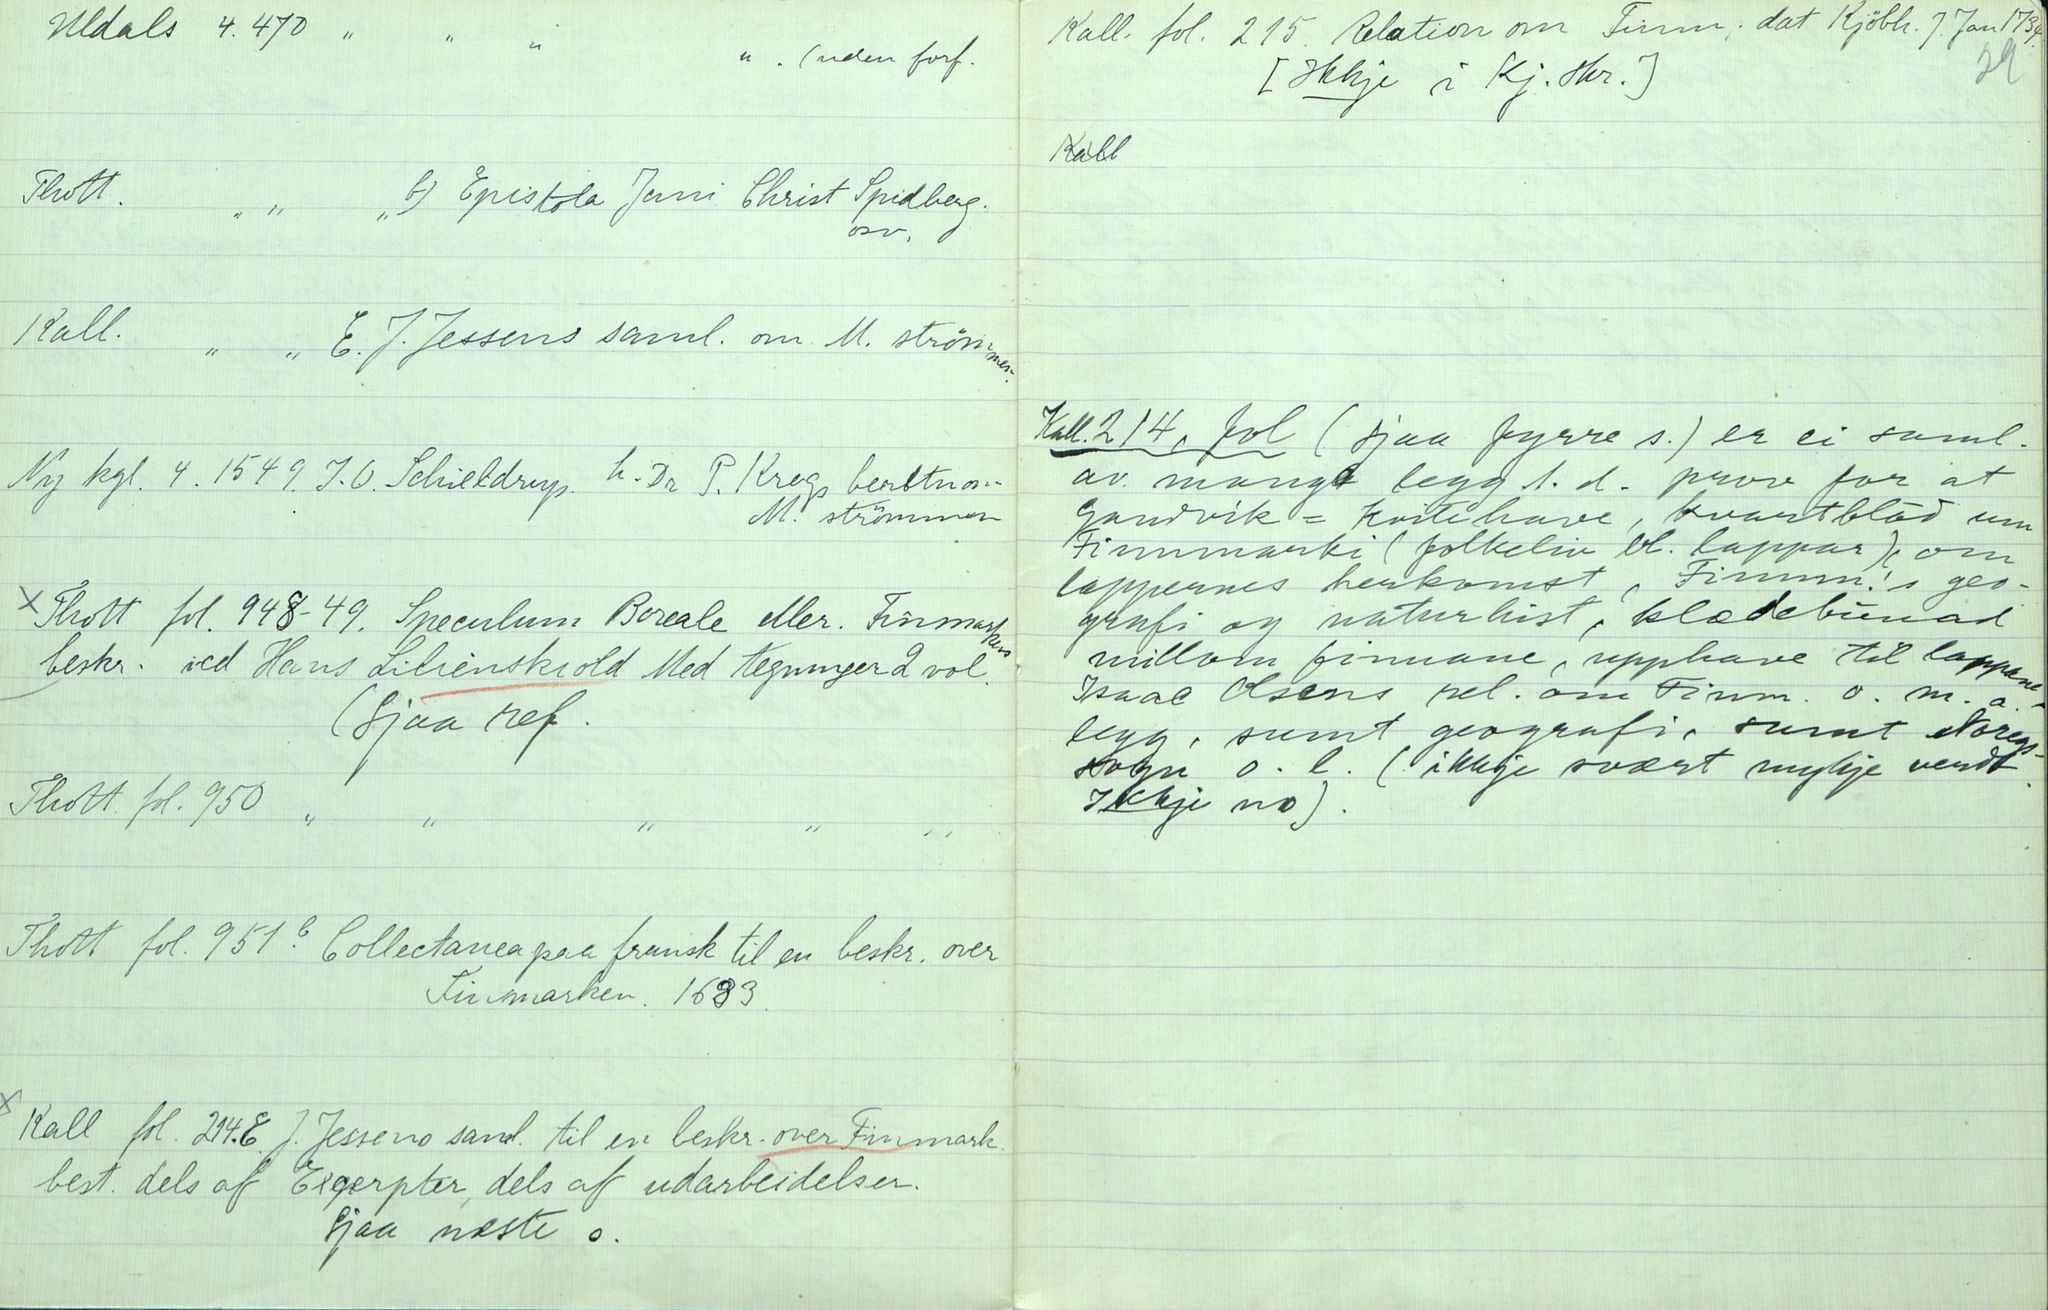 Uldals 4. 470 " " " " . (uden forf.
Thott. " " " b) Epistola Jani Christ Spidberg.
osv.
Kall. " " E. J. Jessens saml. om M. strömmen.
Ny kgl. 4. 1549. J. O. Schieldrup. h. Dr P. Kregs beretn om
M. strömmen
X Thott fol. 948-49. Speculum Boreale eller. Finmarkens
beskr. ved Hans Lilienskiold Med tegninger 2 vol.
(Sjaa ref.
Thott fol. 950 " " " " "
Thott fol. 951 b Collectanea paa fransk til en beskr. over
Finmarken. 1683.
X
Kall fol. 214. E. J. Jessens saml. til en beskr. over Finmark.
best. dels af Excerpter, dels af udarbeidelser.
Sjaa næste s.
Kall. fol. 215. Relation om Finm. dat Kjöbh. 7. Jan 1734.
29
[Ikkje i Kj. Skr.]
Kall
Kall. 214, fol (sjaa fyrre s.) er ei saml.
av mange legg t. d. prov for at
Gandvik = Kvitehave, kvartblad um
Finnmarki (folkeliv bl. lappar), om
lappernes herkomst, Finnm.'s geo-
grafi og naturhist, klædebunad
millom finnane, upphave til lappane
Isaac Olsens rel. om Finm. o. m. a.
legg, sumt geografi, sumt Noregs-
sogn o. l. (ikkje svært mykje verdt.
Ikkje no).